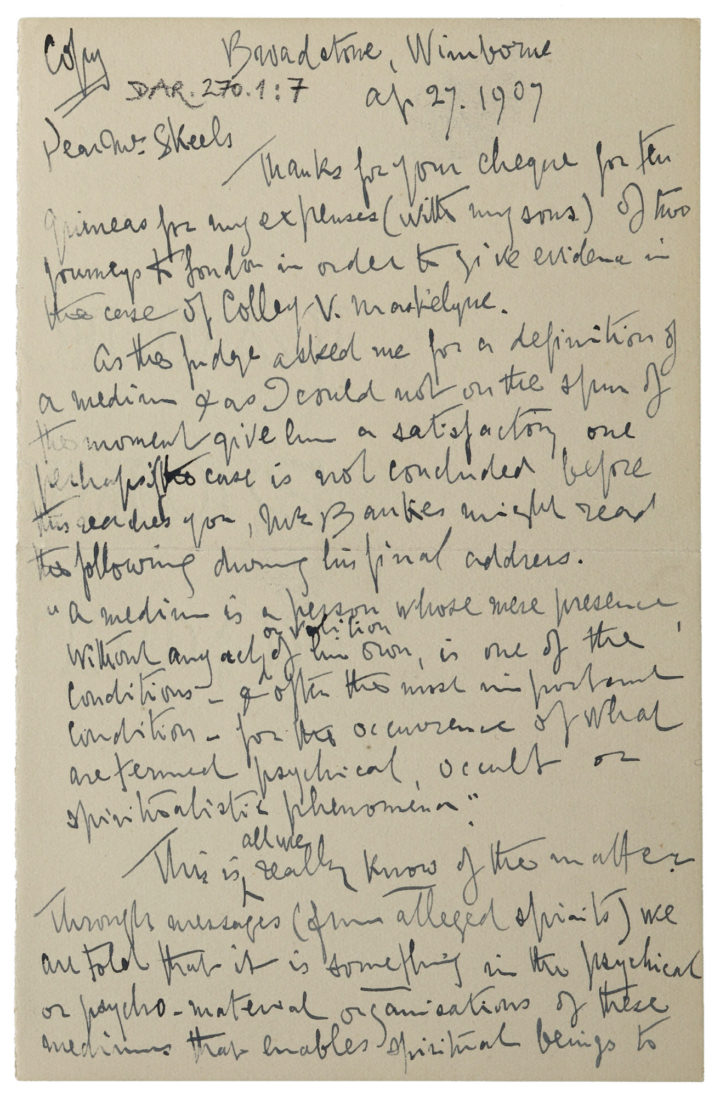 Copy
Broadstone, Wimborne
DAR.270.1:7
Ap 27. 1907
Dear Mr. Skeels
Thanks for your cheque for ten
guineas for my expenses (with my sons) of two
journeys to London in order to give evidence in
the case of Colley V. Maskelyne.
As the judge asked me for a definition of
a medium & as I could not on the spur of
the moment give him a satisfactory one
perhaps if the case is not concluded before
this reaches you, Mr Bankes might read
the following during his final address.
"A medium is a person whose mere presence,
or volition
without any act of his own, is one of the
conditions – & often the most important
condition – for the occurrence of what
are termed psychical, occult or
spiritualistic phenomena".
all we
This is really know of the matter.
Through messages (from alleged spirits) we
are told that it is something in the psychical
or psycho-material organisations of these
mediums that enables spiritual beings to